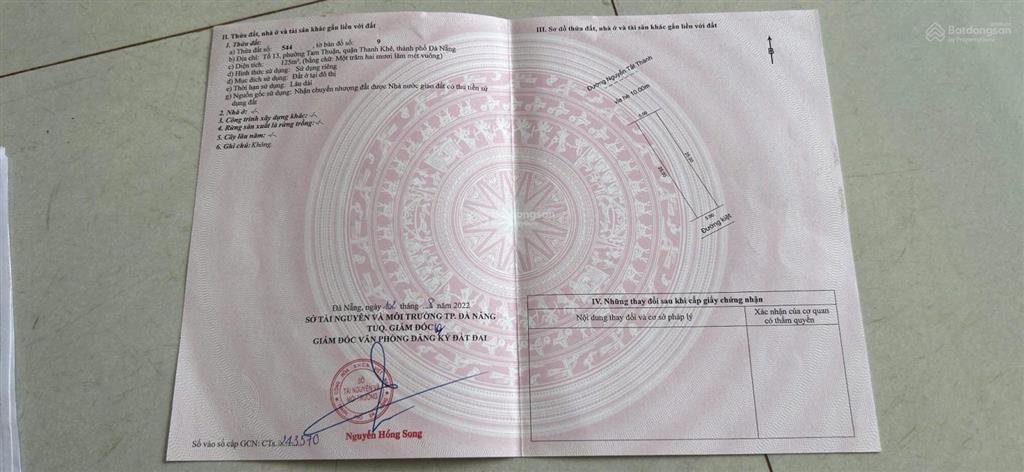 II. Thửa đất, nhà ở và tài sản khác gắn liền với đất
1. Thửa đất:
a) Thửa đất số: 544 , tờ bản đồ số: 9
b) Địa chỉ: Tổ 13, phường Tam Thuận, quận Thanh Khê, thành phố Đà Nẵng
c) Diện tích: 125m², (bằng chữ: Một trăm hai mươi lăm mét vuông)
d) Hình thức sử dụng: Sử dụng riêng
đ) Mục đích sử dụng: Đất ở tại đô thị
e) Thời hạn sử dụng: Lâu dài
g) Nguồn gốc sử dụng: Nhận chuyển nhượng đất được Nhà nước giao đất có thu tiền sử
dụng đất
2. Nhà ở: -/-
3. Công trình xây dựng khác: -/-
4. Rừng sản xuất là rừng trồng: -/-
5. Cây lâu năm: -/-
6. Ghi chú: Không.
Đà Nẵng, ngày 12 tháng 8 năm 2022
SỞ TÀI NGUYÊN VÀ MÔI TRƯỜNG TP. ĐÀ NẴNG
TUQ. GIÁM ĐỐC
GIÁM ĐỐC VĂN PHÒNG ĐĂNG KÝ ĐẤT ĐAI
SỞ
TÀI NGUYÊN VÀ
MÔI TRƯỜNG
Nguyễn Hồng Song
Số vào sổ cấp GCN: CTs. 243570
III. Sơ đồ thửa đất, nhà ở và tài sản khác gắn liền với đất
B
Đường Nguyễn Tất Thành
vỉa hè 10.00m
5.00
25.00
25.00
5.00
Đường kiệt
IV. Những thay đổi sau khi cấp giấy chứng nhận
Nội dung thay đổi và cơ sở pháp lý
Xác nhận của cơ quan
có thẩm quyền
Batdongsan
by PropertyGuru
Batdongsan